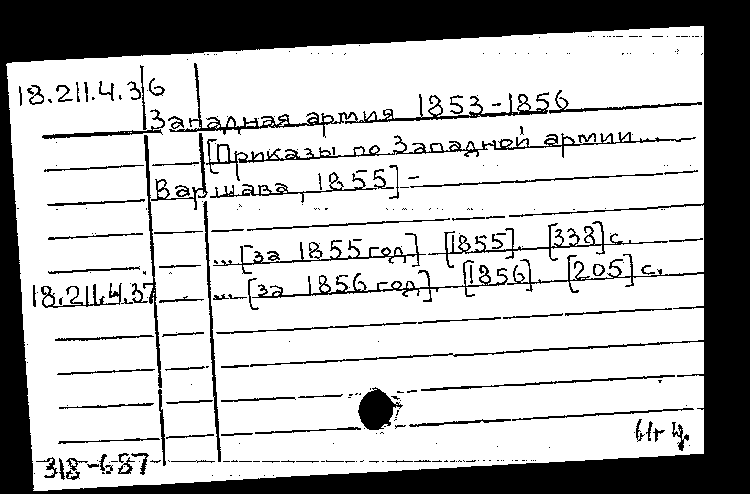 18.211.4.36
Западная армия 1853-1856
[Приказы по Западной армии...
Варшава, 1855] -
... [за 1855 год]. [1855]. [338] с.
18.211.4.37 ... [за 1856 год]. [1856]. [205] с.
318-687